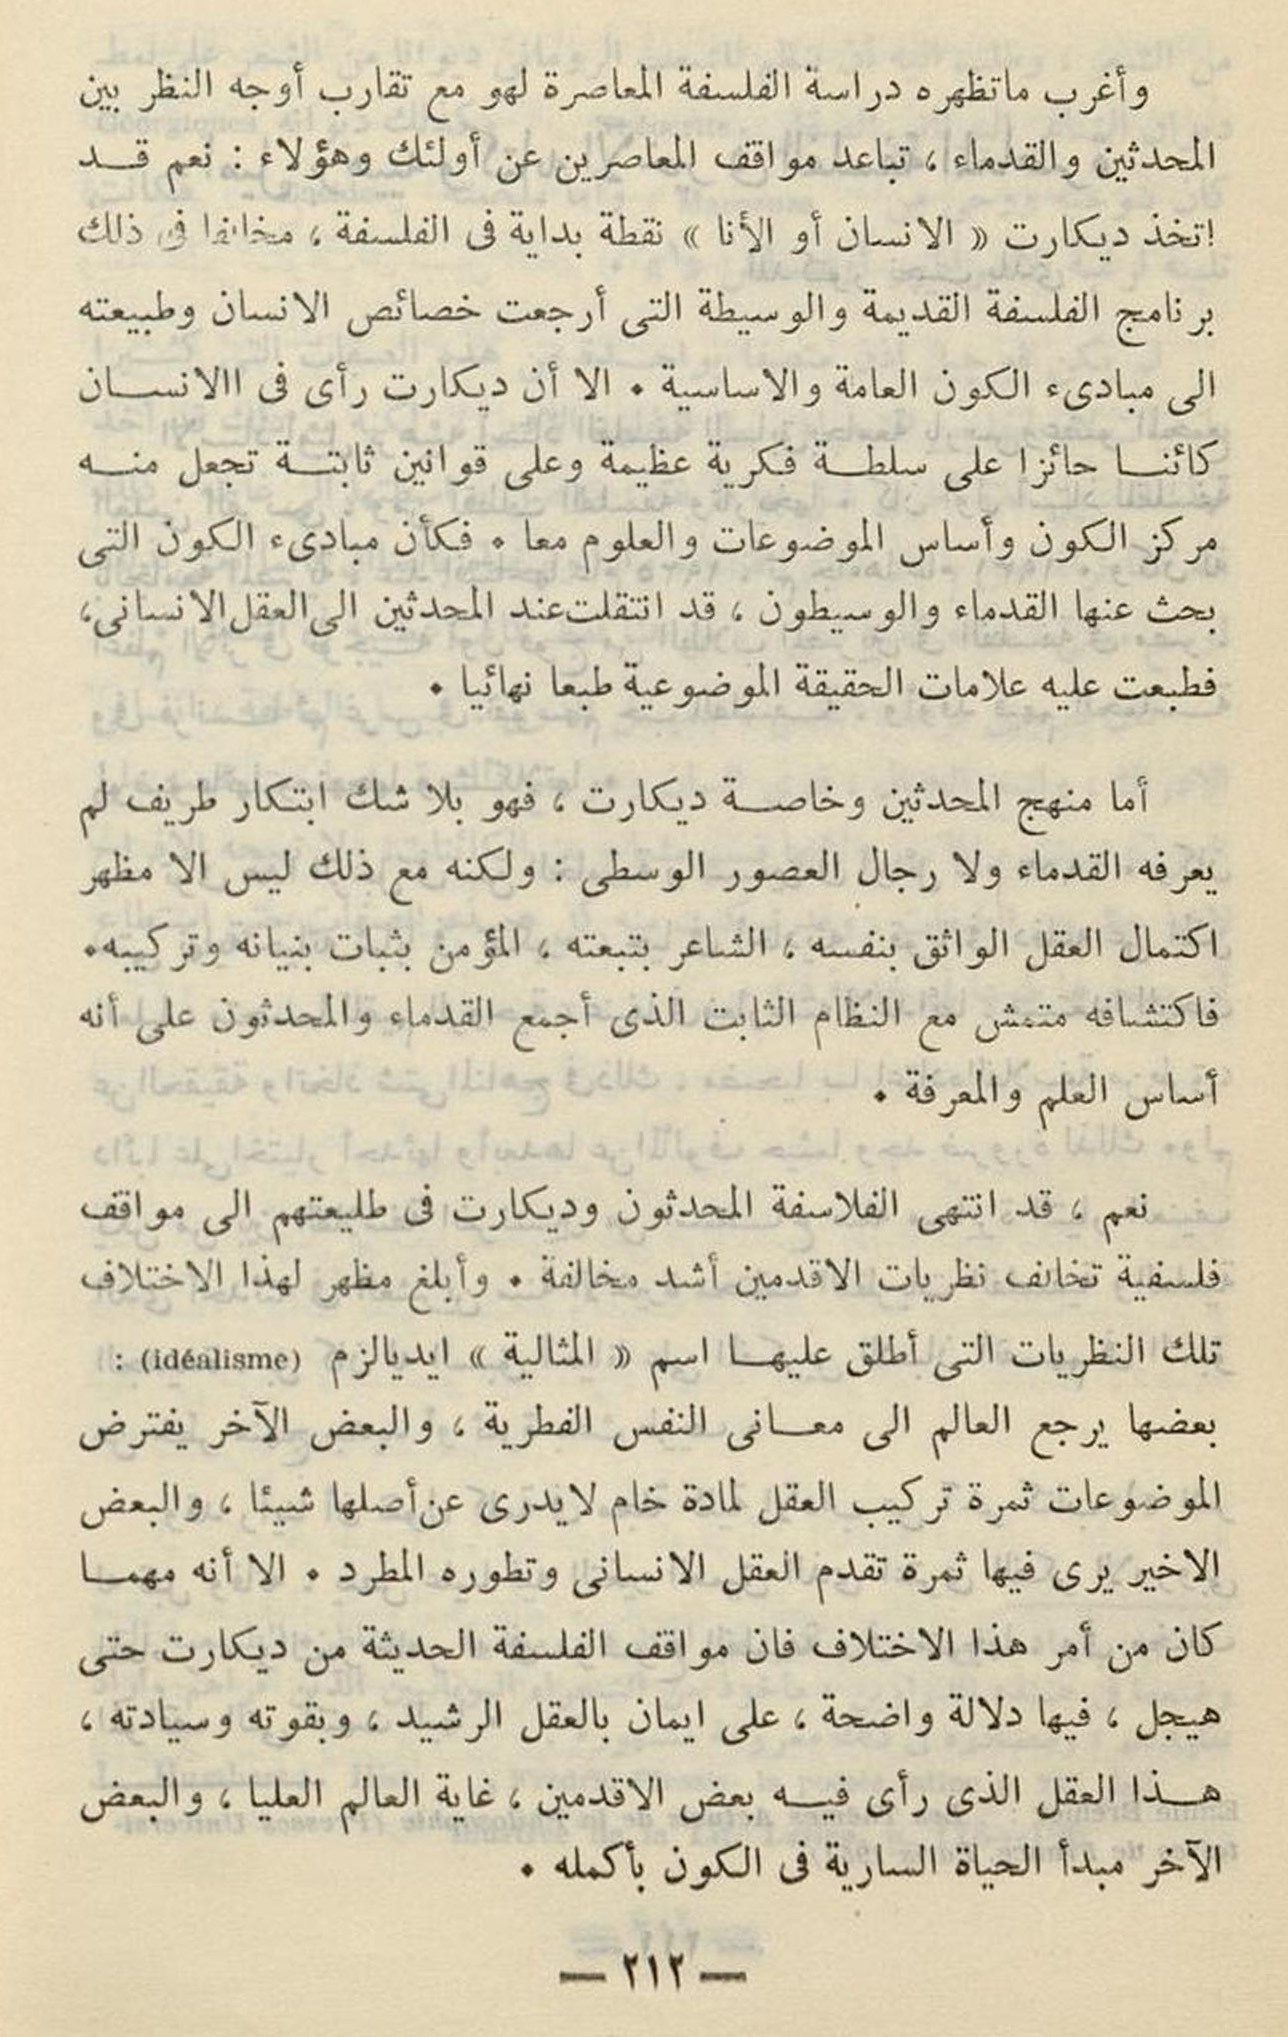 وأغرب ماتظهره دراسة الفلسفة المعاصرة لهو مع تقارب أوجه النظر بين
المحدثين والقدماء ، تباعد مواقف المعاصرين عن أولئك وهؤلاء : نعم قـد
اتخذ ديكارت « الانسان أو الأنا » نقطة بداية فى الفلسفة ، مخالفا فى ذلك
برنامج الفلسفة القديمة والوسيطة التى أرجعت خصائص الانسان وطبيعته
الى مبادىء الكون العامة والاساسية . الا أن ديكارت رأى فى االانسـان
كائنـا حائزا على سلطـة فكرية عظيمة وعلى قوانين ثابتـة تجعل منـه
مركز الكون وأساس الموضوعات والعلوم معا . فكأن مبادىء الكون التى
بحث عنها القدماء والوسيطون ، قد انتقلت عند المحدثين الى العقل الانسانى،
فطبعت عليه علامات الحقيقة الموضوعية طبعا نهائيا .
أما منهج المحدثين وخاصـة ديكارت ، فهو بلا شك ابتكار طريف لم
يعرفه القدماء ولا رجال العصور الوسطى : ولكنه مع ذلك ليس الا مظهر
اكتمال العقل الواثق بنفسه ، الشاعر بتبعته ، المؤمن بثبات بنيانه وتركيبه.
فاكتشافه متمش مع النظام الثابت الذى أجمع القدماء والمحدثون على أنه
أساس العلم والمعرفة .
نعم ، قد انتهى الفلاسفة المحدثون وديكارت فى طليعتهم الى مواقف
فلسفية تخالف نظريات الاقدمين أشد مخالفة . وأبلغ مظهر لهذا الاختلاف
تلك النظريات التى أطلق عليهـا اسم « المثالية » ايديالزم (idéalisme) :
بعضها يرجع العالم الى معـانى النفس الفطرية ، والبعض الآخر يفترض
الموضوعات ثمرة تركيب العقل لمادة خام لايدرى عن أصلها شيئا ، والبعض
الاخير يرى فيها ثمرة تقدم العقل الانسانى وتطوره المطرد . الا أنه مهمـا
كان من أمر هذا الاختلاف فان مواقف الفلسفة الحديثة من ديكارت حتى
هيجل ، فيها دلالة واضحة ، على ايمان بالعقل الرشيد ، وبقوته وسيادته ،
هـذا العقل الذى رأى فيـه بعض الاقدمين ، غاية العالم العليا ، والبعض
الآخر مبدأ الحياة السارية فى الكون بأكمله .
— ٢١٢ —